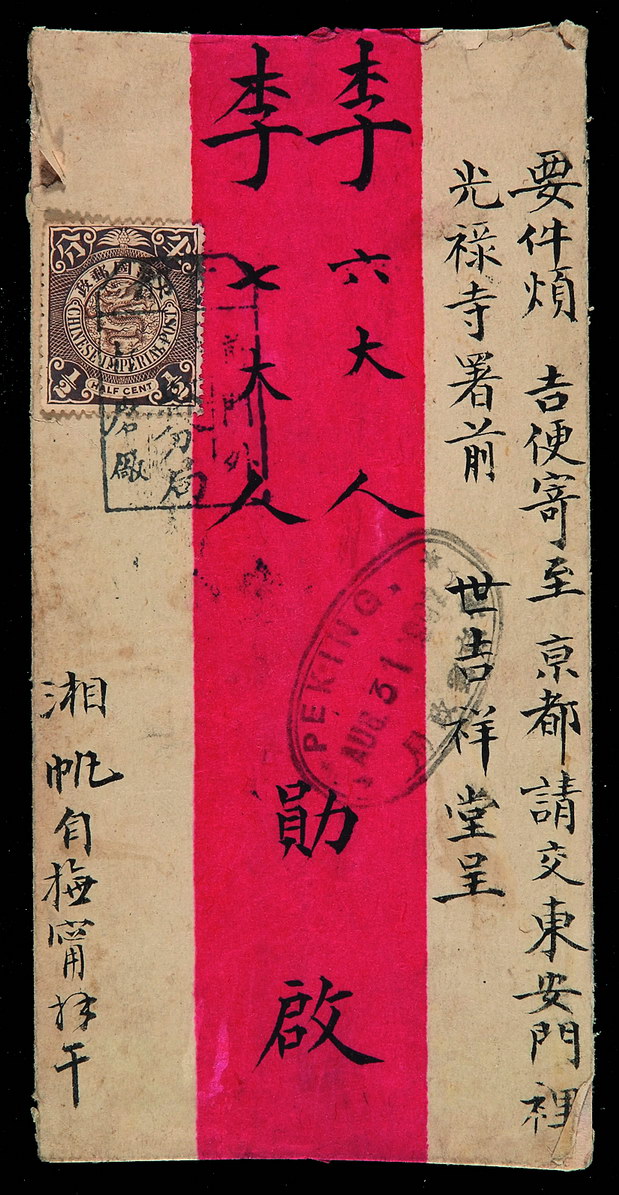 要件煩 吉便寄至 京都 請交東安門裡
光禄寺署前 世吉祥堂呈
李六大人
李七大人
勛啟
湘帆自梅甯拜干
分 半
政郵國
CHINESE IMPERIAL POST
½ ½
HALF CENT
前門外
分局
厰
PEKING
AUG 31